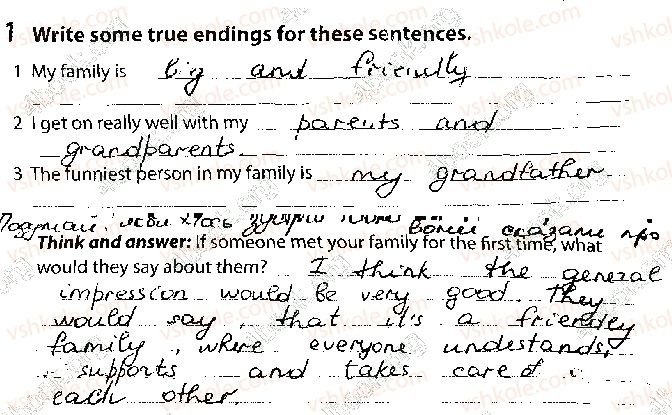 1 Write some true endings for these sentences.
1 My family is big and friendly
2 I get on really well with my parents and
grandparents
3 The funniest person in my family is my grandfather
Подумай, якби хтось зустрів
Think and answer: If someone met your family for the first time, what
would they say about them? I think the general
impression would be very good. They
would say, that it's a friendley
family, where everyone undestands,
supports and takes care of
each other.